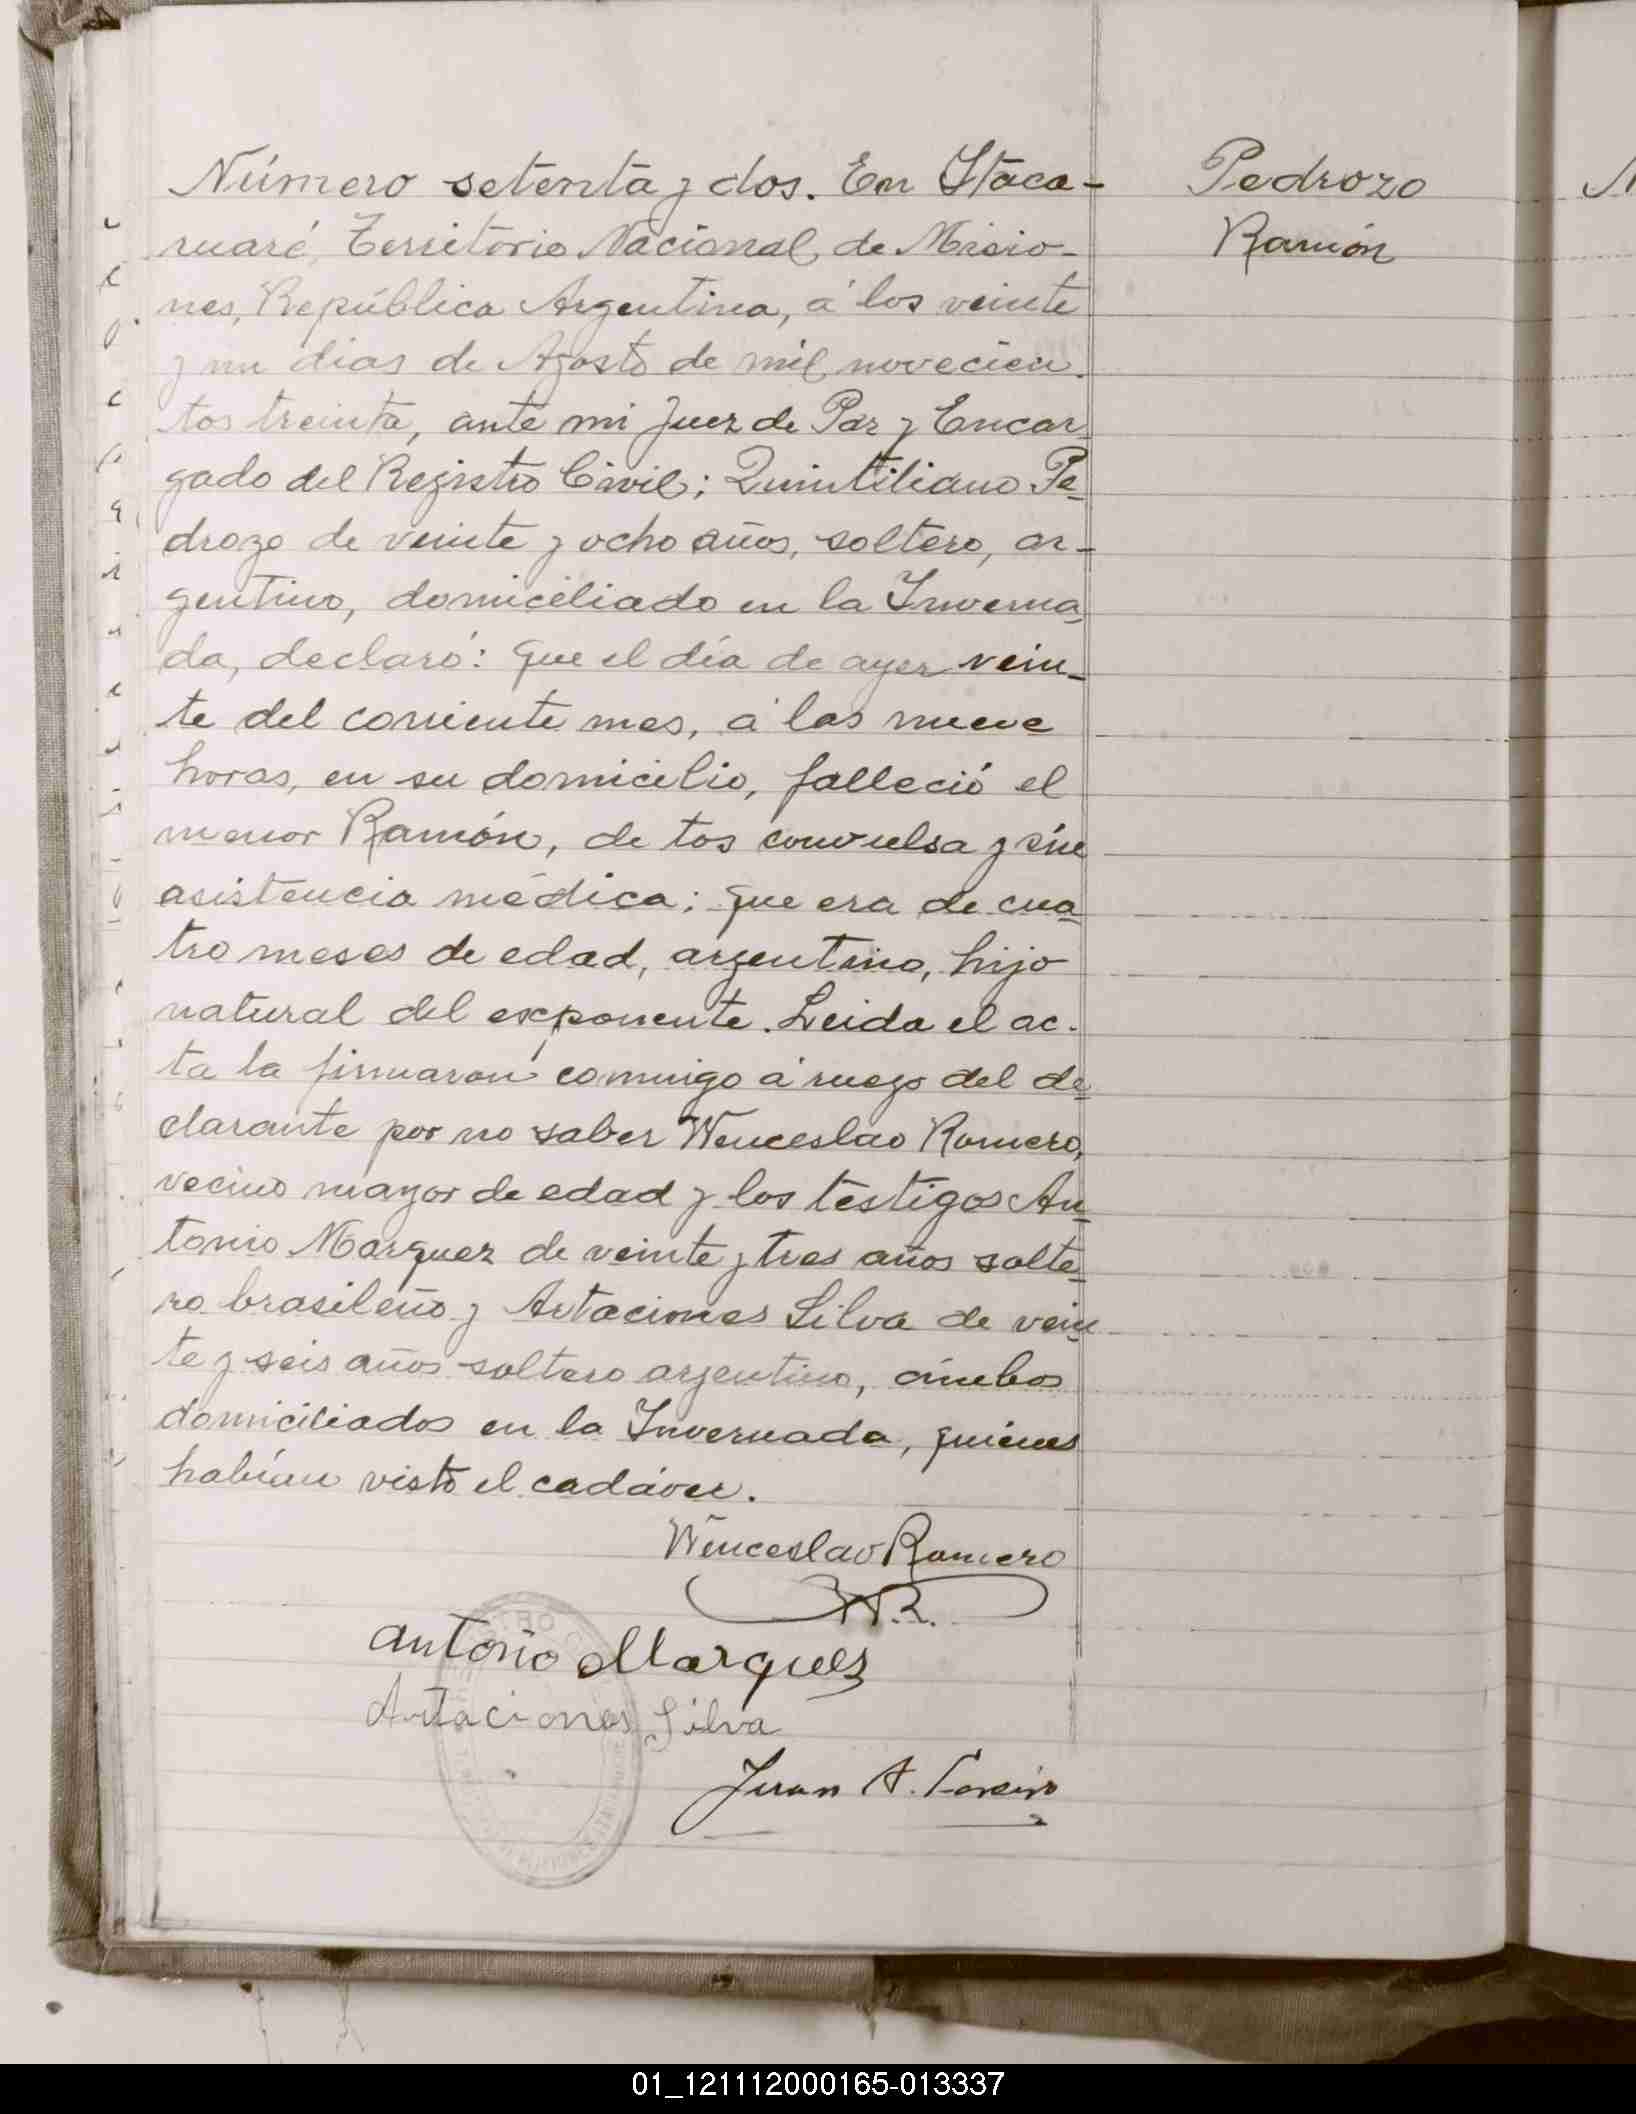 Número setenta y dos. En Itaca-
ruaré, Territorio Nacional de Misio-
nes, República Argentina, á los veinte
y un dias de Agosto de mil novecien-
tos treinta, ante mi Juez de Paz y Encar-
gado del Registro Civil; Quintiliano Pe-
drozo de veinte y ocho años, soltero, ar-
gentino, domiciliado en la Inverna-
da, declaró: Que el día de ayer vein-
te del corriente mes, á las nueve
horas, en su domicilio, falleció el
menor Ramón, de tos convulsa y sin
asistencia médica; que era de cua-
tro meses de edad, argentino, hijo
natural del exponente. Leida el ac-
ta la firmaron conmigo á ruego del de-
clarante por no saber Wenceslao Romero,
vecino mayor de edad y los testigos An-
tonio Marquez de veinte y tres años solte-
ro brasileño y Artaciones Silva de vein-
te y seis años soltero argentino, ámbos
domiciliados en la Invernada, quienes
habían visto el cadáver.
Wenceslao Romero
W.R.
Antonio Marquez
Artaciones Silva
Juan A.
Pedrozo
Ramón
01_121112000165-013337